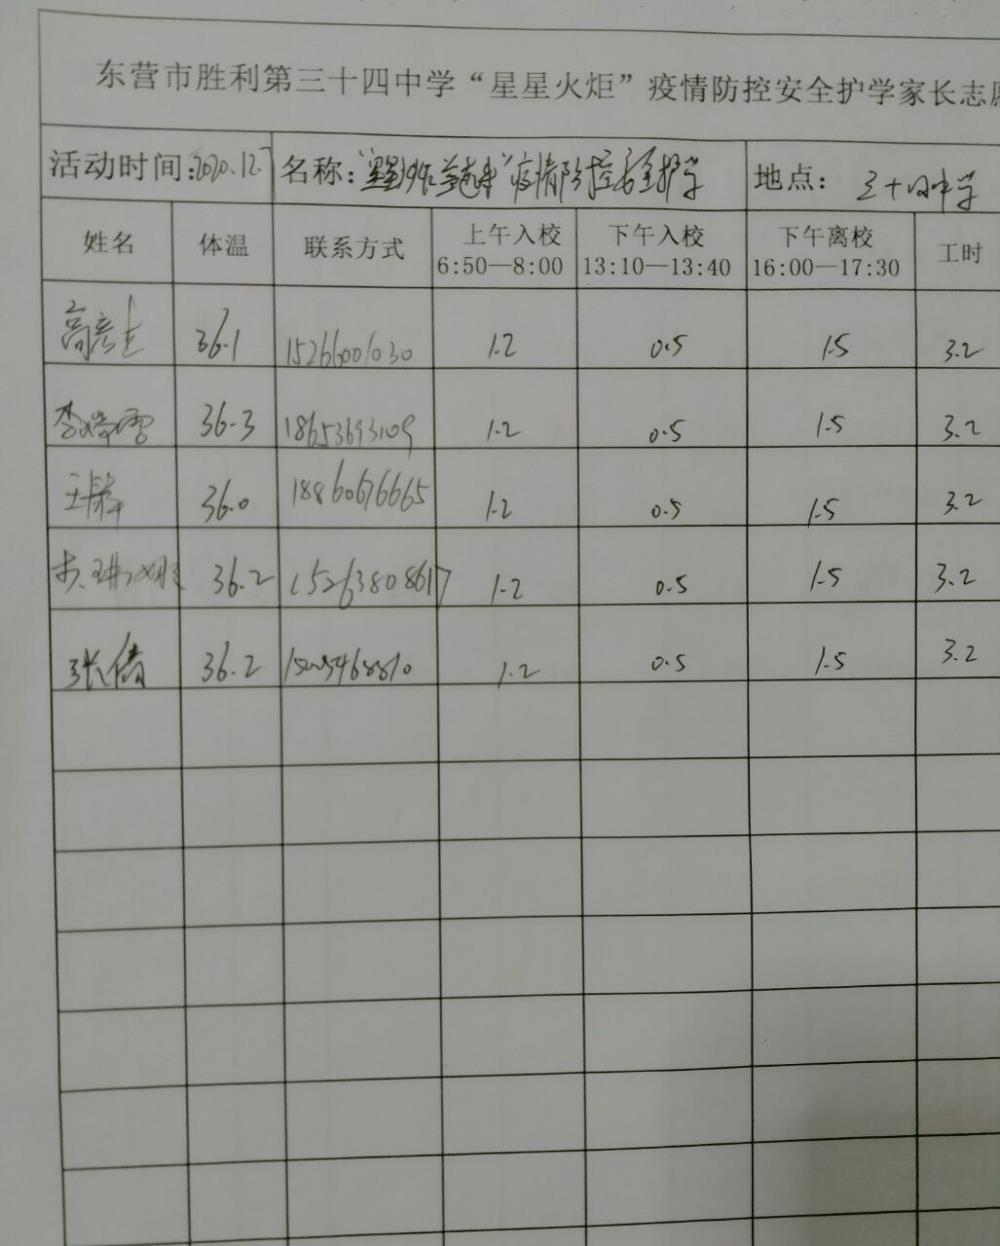 东营市胜利第三十四中学“星星火炬”疫情防控安全护学家长志愿
活动时间:2020.12.7 名称: 疫情防控安全护学 地点: 三十四中学
姓名 体温 联系方式 上午入校 6:50—8:00 下午入校 13:10—13:40 下午离校 16:00—17:30 工时
36.1 15266001030 1.2 0.5 1.5 3.2
36.3 18653693109 1.2 0.5 1.5 3.2
36.0 18860676665 1.2 0.5 1.5 3.2
36.2 15263808617 1.2 0.5 1.5 3.2
张倩 36.2 1.2 0.5 1.5 3.2